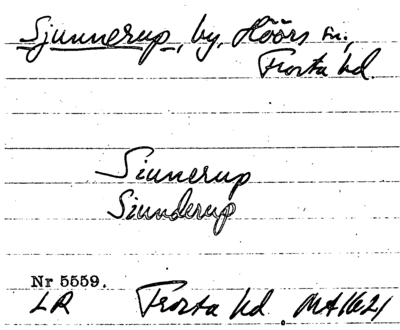 Sjunnerup, by, Höörs sn.,
Frosta hd.
Siunerup
Siunderup
Nr 5559.
LR Frosta hd. MA 1621